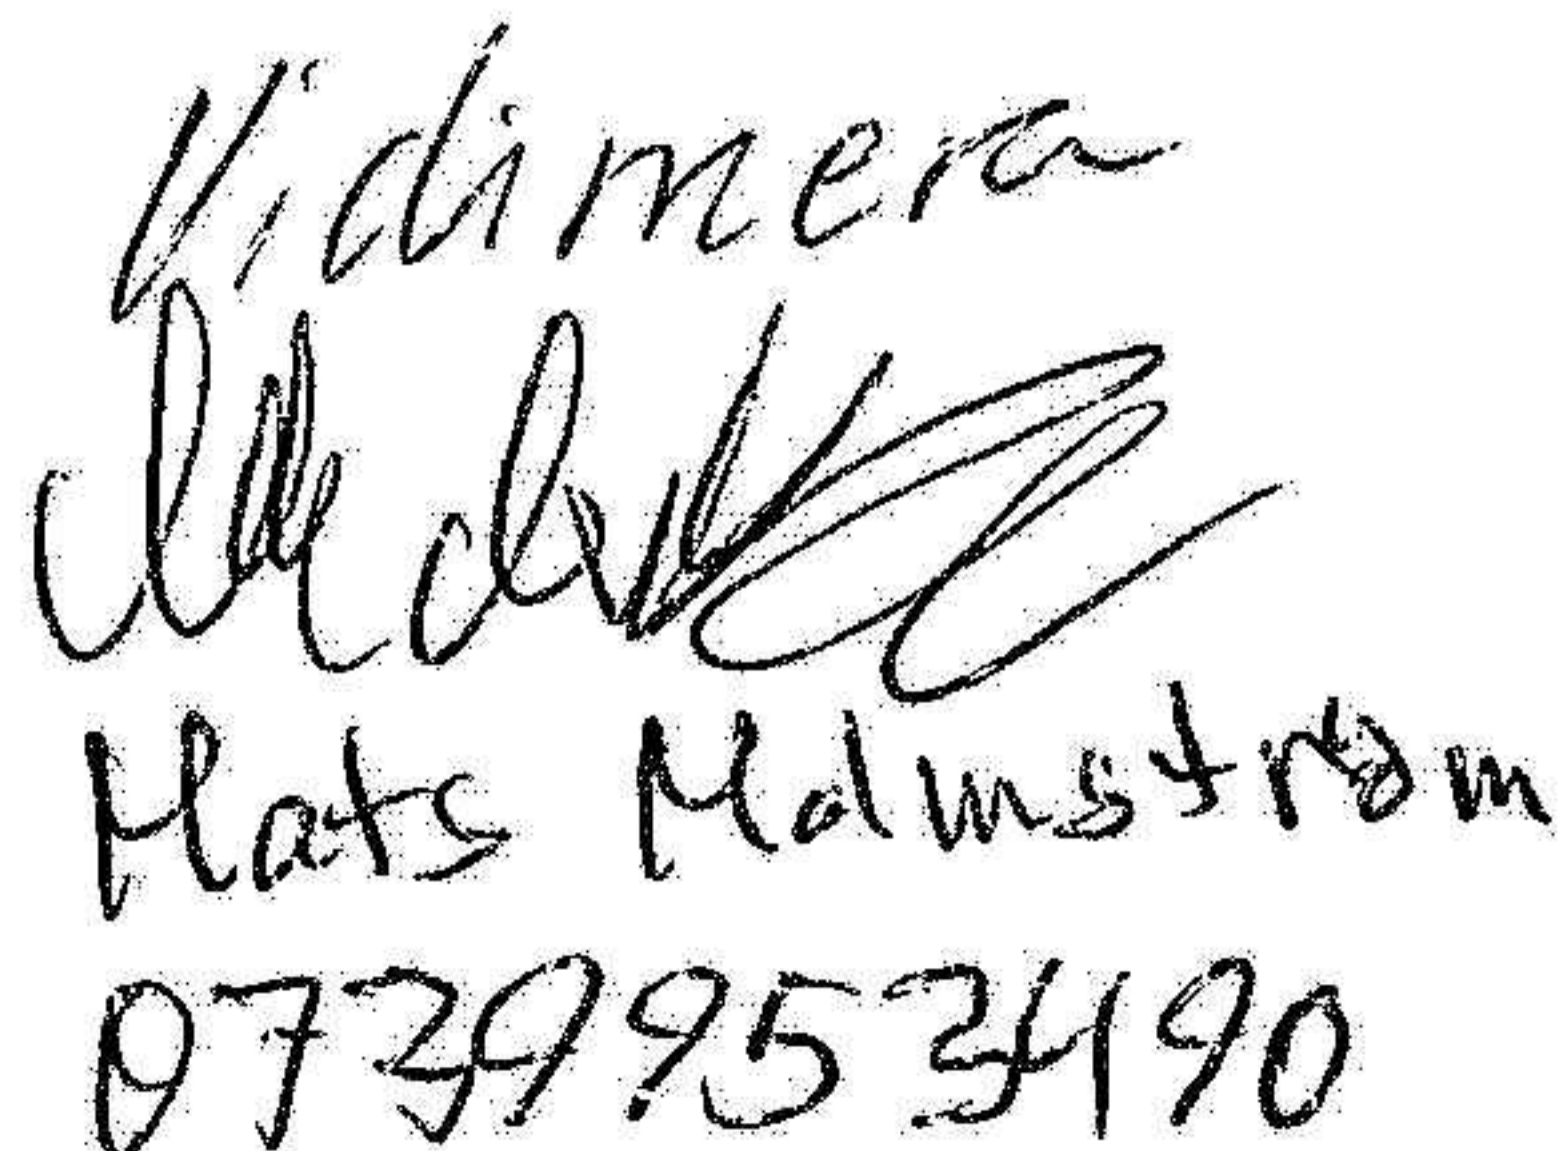 Vidimera
Mats Malmström
0739953490